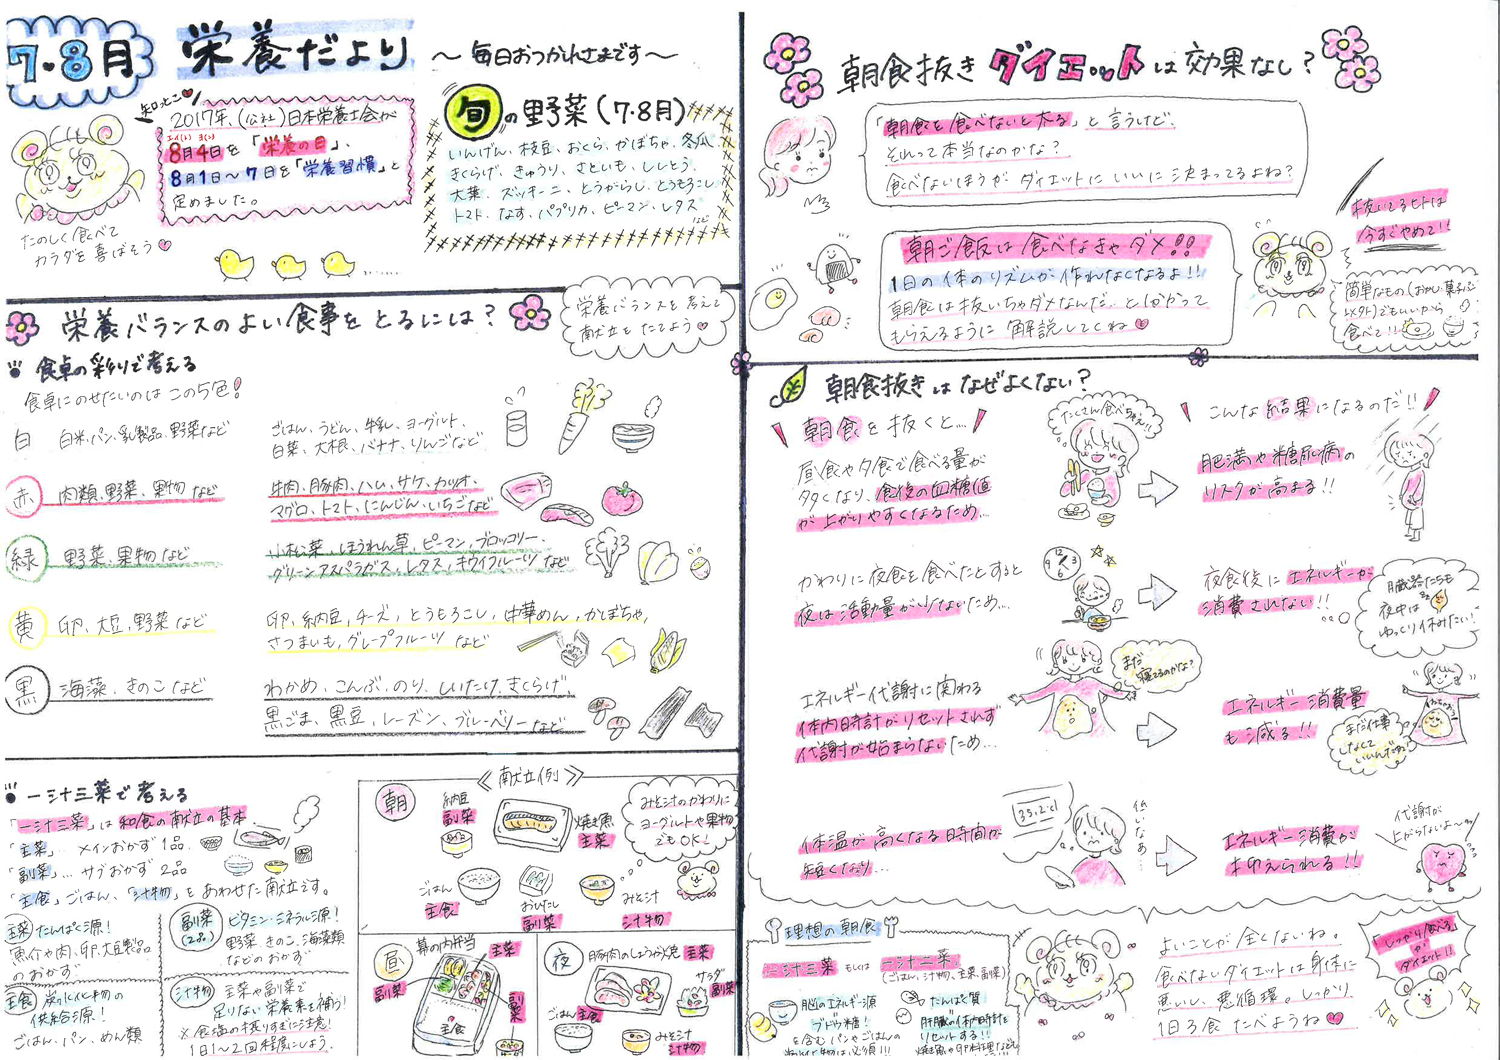 7・8月
栄養だより
～ 毎日おつかれさまです ～
知っとこ
2017年、(公社)日本栄養士会が
8月4日を「栄養の日」、
8月1日～7日を「栄養習慣」と
定めました。
たのしく食べて
カラダを喜ばそう
旬の野菜(7・8月)
いんげん、枝豆、おくら、かぼちゃ、冬瓜
きくらげ、きゅうり、さといも、ししとう、
大葉、ズッキーニ、とうがらし、とうもろこし
トマト、なす、パプリカ、ピーマン、レタス
など
栄養バランスのよい食事をとるには?
栄養バランスを考えて
献立をたてよう
食卓の彩りで考える
食卓にのせたいのはこの5色!
白 白米、パン、乳製品、野菜など
ごはん、うどん、牛乳、ヨーグルト、
白菜、大根、バナナ、りんごなど
赤 肉類、野菜、果物など
牛肉、豚肉、ハム、サケ、カツオ、
マグロ、トマト、にんじん、いちごなど
緑 野菜、果物など
小松菜、ほうれん草、ピーマン、ブロッコリー、
グリーンアスパラガス、レタス、キウイフルーツなど
黄 卵、大豆、野菜など
卵、納豆、チーズ、とうもろこし、中華めん、かぼちゃ、
さつまいも、グレープフルーツなど
黒 海藻、きのこなど
わかめ、こんぶ、のり、しいたけ、きくらげ、
黒ごま、黒豆、レーズン、ブルーベリーなど
一汁三菜で考える
「一汁三菜」は和食の献立の基本
「主菜」…メインおかず1品
「副菜」…サブおかず2品
「主食」ごはん、「汁物」をあわせた献立です。
主菜 たんぱく源!
魚介や肉、卵、大豆製品
のおかず
副菜(2品) ビタミン・ミネラル源!
野菜、きのこ、海藻類
などのおかず
主食 炭水化物の
供給源!
ごはん、パン、めん類
汁物 主菜や副菜で
足りない栄養素を補う!
※食塩の摂りすぎに注意!
1日1～2回程度にしよう。
《献立例》
朝
納豆
副菜
焼き魚
主菜
ごはん
主食
おひたし
副菜
みそ汁
汁物
みそ汁のかわりに
ヨーグルトや果物
でもOK!
昼
幕の内弁当
主菜
副菜
副菜
主食
夜
豚肉のしょうが焼 主菜
サラダ
副菜
ごはん 主食
みそ汁
汁物
朝食抜きダイエットは効果なし?
「朝食を食べないと太る」と言うけど、
それって本当なのかな?
食べないほうがダイエットにいいに決まってるよね?
朝ご飯は食べなきゃダメ!!
1日の体のリズムが作れなくなるよ!!
朝食は抜いちゃダメなんだ…と分かって
もらえるように解説してくね
抜いてるヒトは
今すぐやめて!!
食べて!!
朝食抜きはなぜよくない?
朝食を抜くと…
こんな結果になるのだ!!
たくさん食べちゃえ!!
昼食や夕食で食べる量が
多くなり、食後の血糖値
が上がりやすくなるため…
肥満や糖尿病の
リスクが高まる!!
かわりに夜食を食べたとすると
夜は活動量が少ないため…
夜食後にエネルギーが
消費されない!!
臓器たちも
夜中は
ゆっくり休みたい!
エネルギー代謝に関わる
体内時計がリセットされず
代謝が始まらないため…
まだ
寝てるのかな?
エネルギー消費量
も減る!!
まだ仕事
しなくて
いいんだね!
体温が高くなる時間が
短くなり…
35.2℃
低いなあ…
エネルギー消費が
抑えられる!!
代謝が
上がらないよ～
理想の朝食
一汁三菜 もしくは 一汁二菜
(ごはん、汁物、主菜、副菜)
脳のエネルギー源
ブドウ糖!
を含むパンやごはんの
たんぱく質
肝臓の体内時計を
リセットする!!
よいことが全くないね。
食べないダイエットは身体に
悪いし、悪循環。しっかり
1日3食たべようね
「しっかり食べる」
が
ダイエット!!